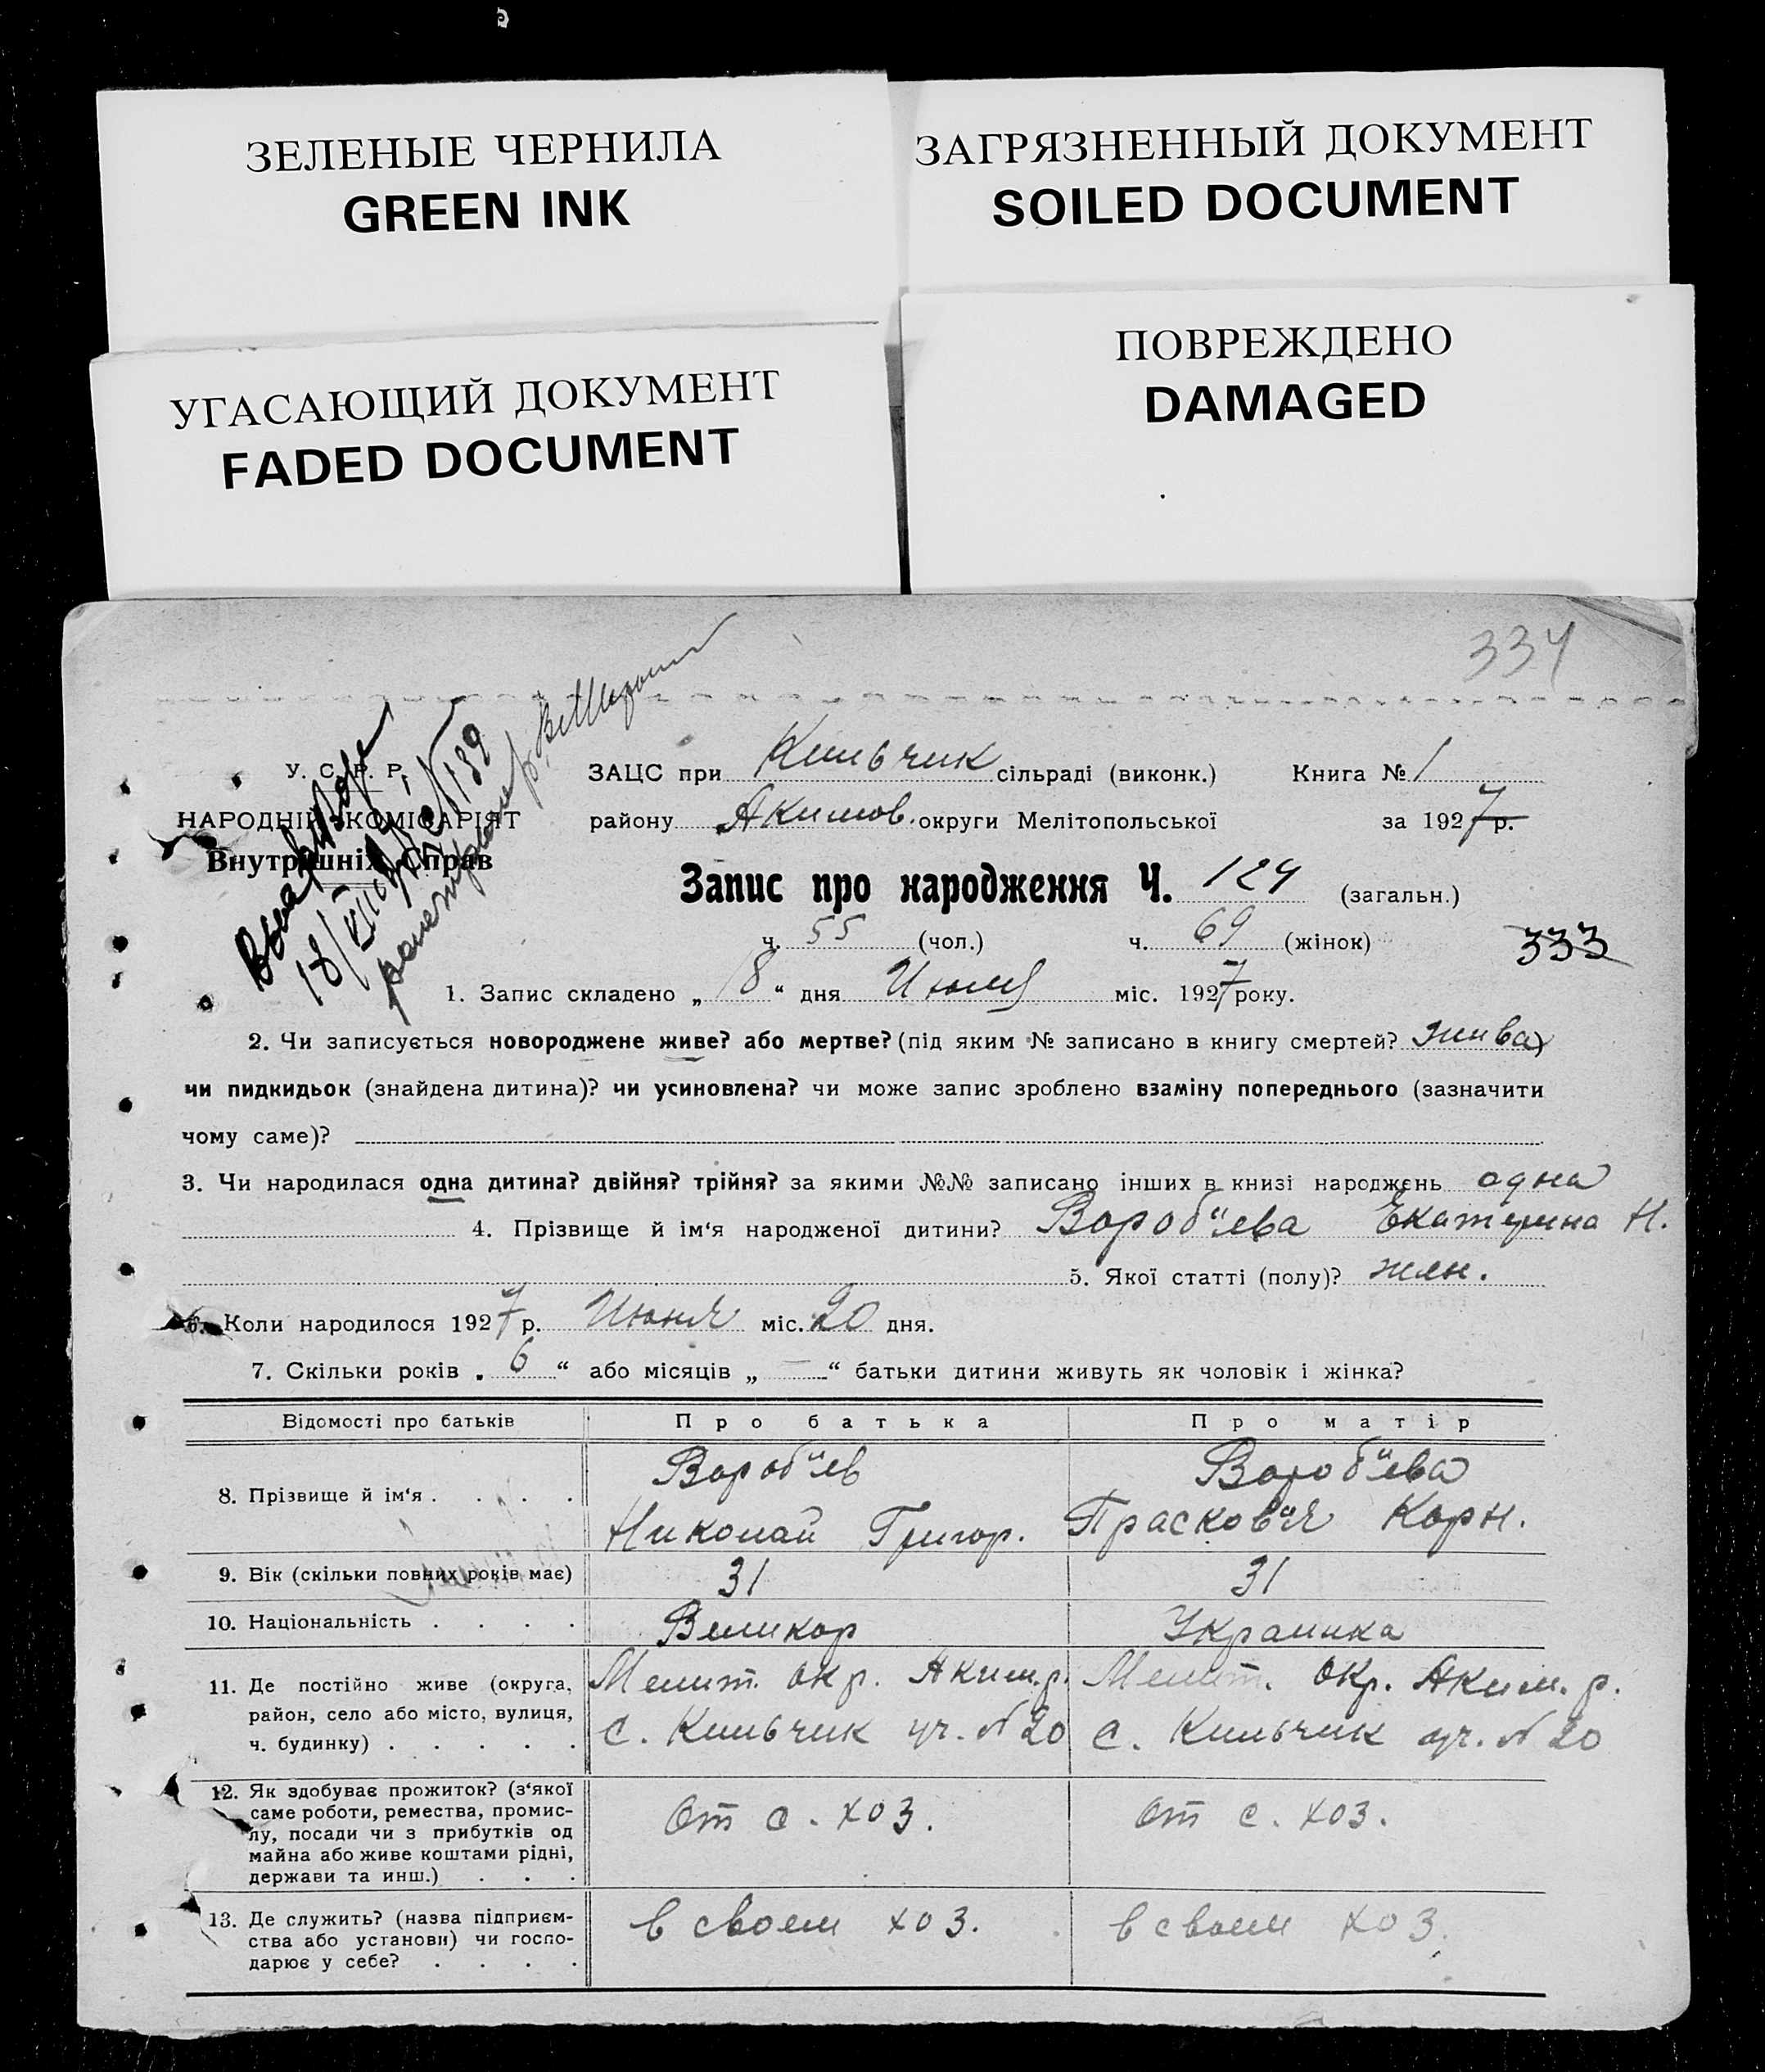 ЗЕЛЕНЫЕ ЧЕРНИЛА
GREEN INK
ЗАГРЯЗНЕННЫЙ ДОКУМЕНТ
SOILED DOCUMENT
УГАСАЮЩИЙ ДОКУМЕНТ
FADED DOCUMENT
ПОВРЕЖДЕНО
DAMAGED
334
У. С. Р. Р.
НАРОДНІЙ КОМІСАРІЯТ
Внутрішніх Справ
ЗАЦС при Кильчик сільраді (виконк.) Книга № 1
району Акимов. округи Мелітопольської за 1927 р.
Запис про народження Ч. 124 (загальн.)
ч. 55 (чол.) ч. 69 (жінок)
333
1. Запис складено „ 18 “ дня Июля міс. 1927 року.
2. Чи записується новороджене живе? або мертве? (під яким № записано в книгу смертей? жива)
чи пидкидьок (знайдена дитина)? чи усиновлена? чи може запис зроблено взаміну попереднього (зазначити
чому саме)?
3. Чи народилася одна дитина? двійня? трійня? за якими №№ записано інших в книзі народжень одна
4. Прізвище й ім‘я народженої дитини? Вороб"ева Екатерина Н.
5. Якої статті (полу)? жен.
6. Коли народилося 1927 р. Июня міс. 20 дня.
7. Скільки років „ 6 “ або місяців „ — “ батьки дитини живуть як чоловік і жінка?
Відомості про батьків Про батька Про матір
8. Прізвище й ім‘я . . . . Вороб"ев Николай Григор. Вороб"ева Прасков"я Корн.
9. Вік (скільки повних років має) 31 31
10. Національність . . . . Великор Украинка
11. Де постійно живе (округа,
район, село або місто, вулиця,
ч. будинку) . . . . .
Мелит. окр. Аким. р.
с. Кильчик уч. № 20
Мелит. окр. Аким. р.
с. Кильчик уч. № 20
12. Як здобуває прожиток? (з‘якої
саме роботи, ремества, промис-
лу, посади чи з прибутків од
майна або живе коштами рідні,
держави та инш.) . . .
От с. хоз.
от с. хоз.
13. Де служить? (назва підприєм-
ства або установи) чи госпо-
дарює у себе? . . . .
в своем хоз.
в своем хоз.